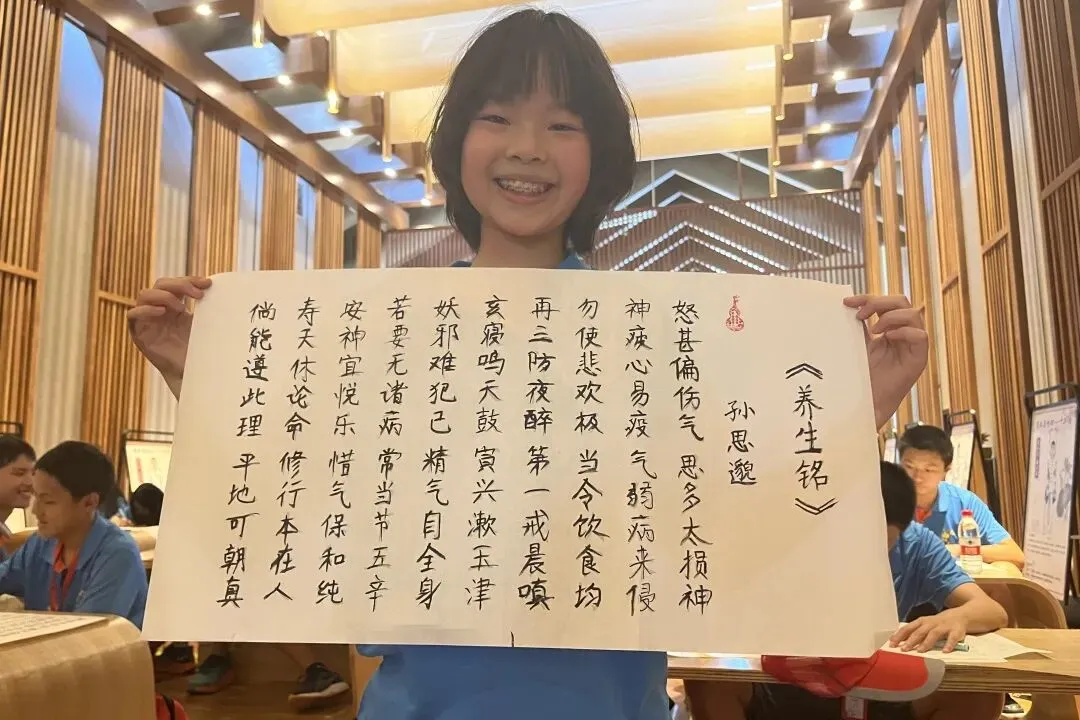 《养生铭》
孙思邈
怒甚偏伤气 思多太损神
神疲心易疫 气弱病来侵
勿使悲欢极 当令饮食均
再三防夜醉 第一戒晨嗔
亥寝鸣天鼓 寅兴漱玉津
妖邪难犯己 精气自全身
若要无诸病 常当节五辛
安神宜悦乐 惜气保和纯
寿天休论命 修行本在人
倘能遵此理 平地可朝真